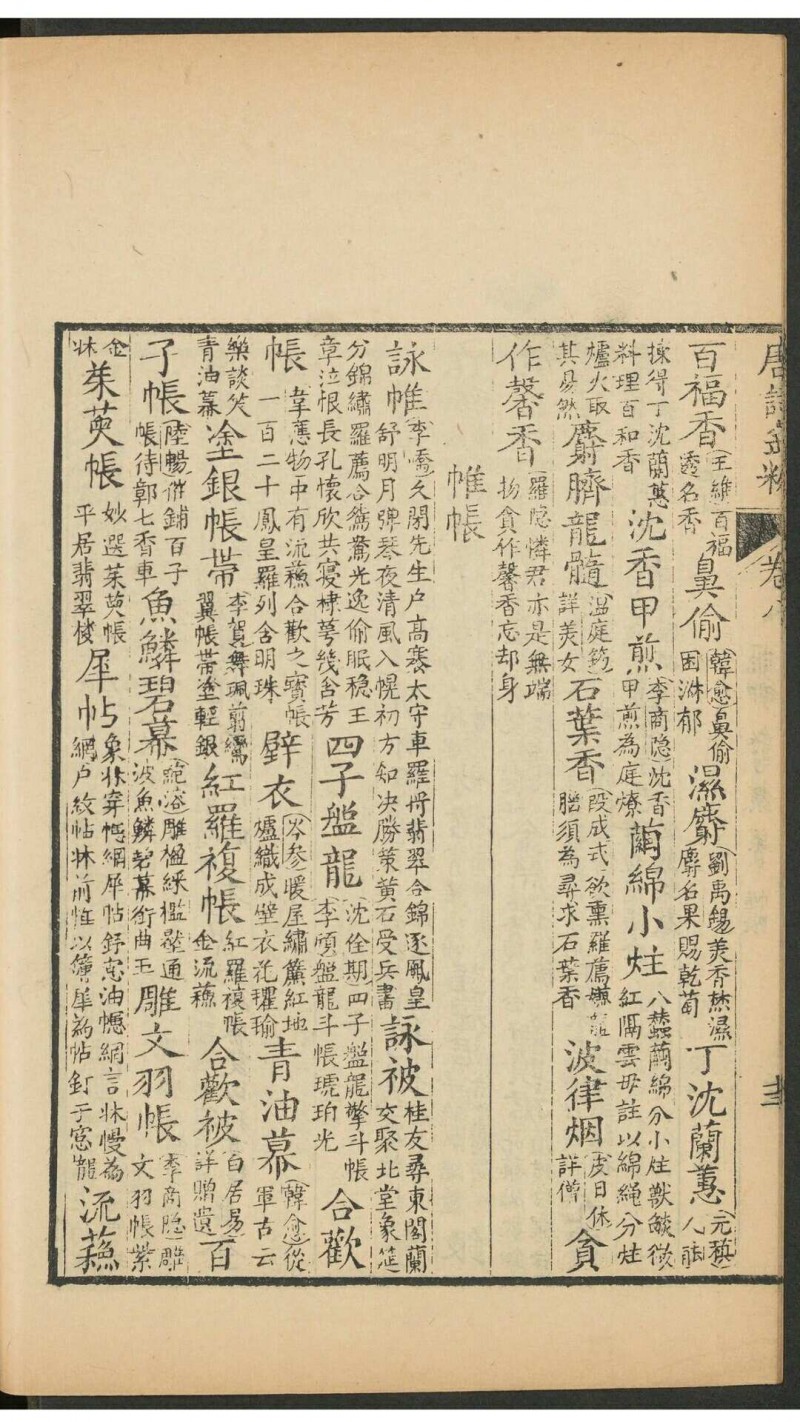 唐詩金粉 卷八
百福香王維百福透名香鼻偷韓愈鼻偷困淋郁濕麝劉禹錫美香焚濕麝名果賜乾萄丁沈蘭蕙元稹人
揀得丁沈蘭蕙料理百和香沈香甲煎李商隐沈香甲煎為庭燎蘭綿小炷八蠶繭綿分小炷獸燄微紅隔雲母註以綿繩分炷
爐火取其易然麝臍龍髓温庭筠詳美女石葉香段成式欲熏羅薦嫌龍腦須為尋求石葉香波律烟皮日休詳僧貪
作馨香羅隐憐君亦是無端物貪作馨香忘却身
帷帳
詠帷李嶠久閉先生户高褰太守車羅将翡翠合錦逐鳳皇舒明月彈琴夜清風入幌初方知决勝策黄石受兵書詠被桂友尋東閣蘭交聚北堂象筵
分錦繡羅薦合鴛鴦光逸偷眠稳王章泣恨長孔懷欣共寝棣萼幾含芳四子盤龍沈佺期四子盤龍擎斗帳李頎盤龍斗帳琥珀光合歡
帳韋應物中有流蘇合歡之寶帳一百二十鳳皇羅列含明珠壁衣岑参暖屋繡簾紅地爐織成壁衣花氍毹青油幕韓愈從軍古云
樂談笑青油幕塗銀帳帶李賀舞珮剪鸞翼帳帶塗輕銀紅羅複帳紅羅複帳金流蘇合歡被白居易詳贈遺百
子帳陸暢催鋪百子帳待郭七香車魚鱗碧幕鮑溶雕楹綵檻壓通波魚鱗碧幕銜曲玉雕文羽帳李商隐雕文羽帳紫
金牀茱萸帳妙選茱萸帳平居翡翠楼犀帖象牀穿幰網犀帖釘窓油幰網言牀幔為網户紋帖牀前帷以簿犀為帖釘于窓流蘇